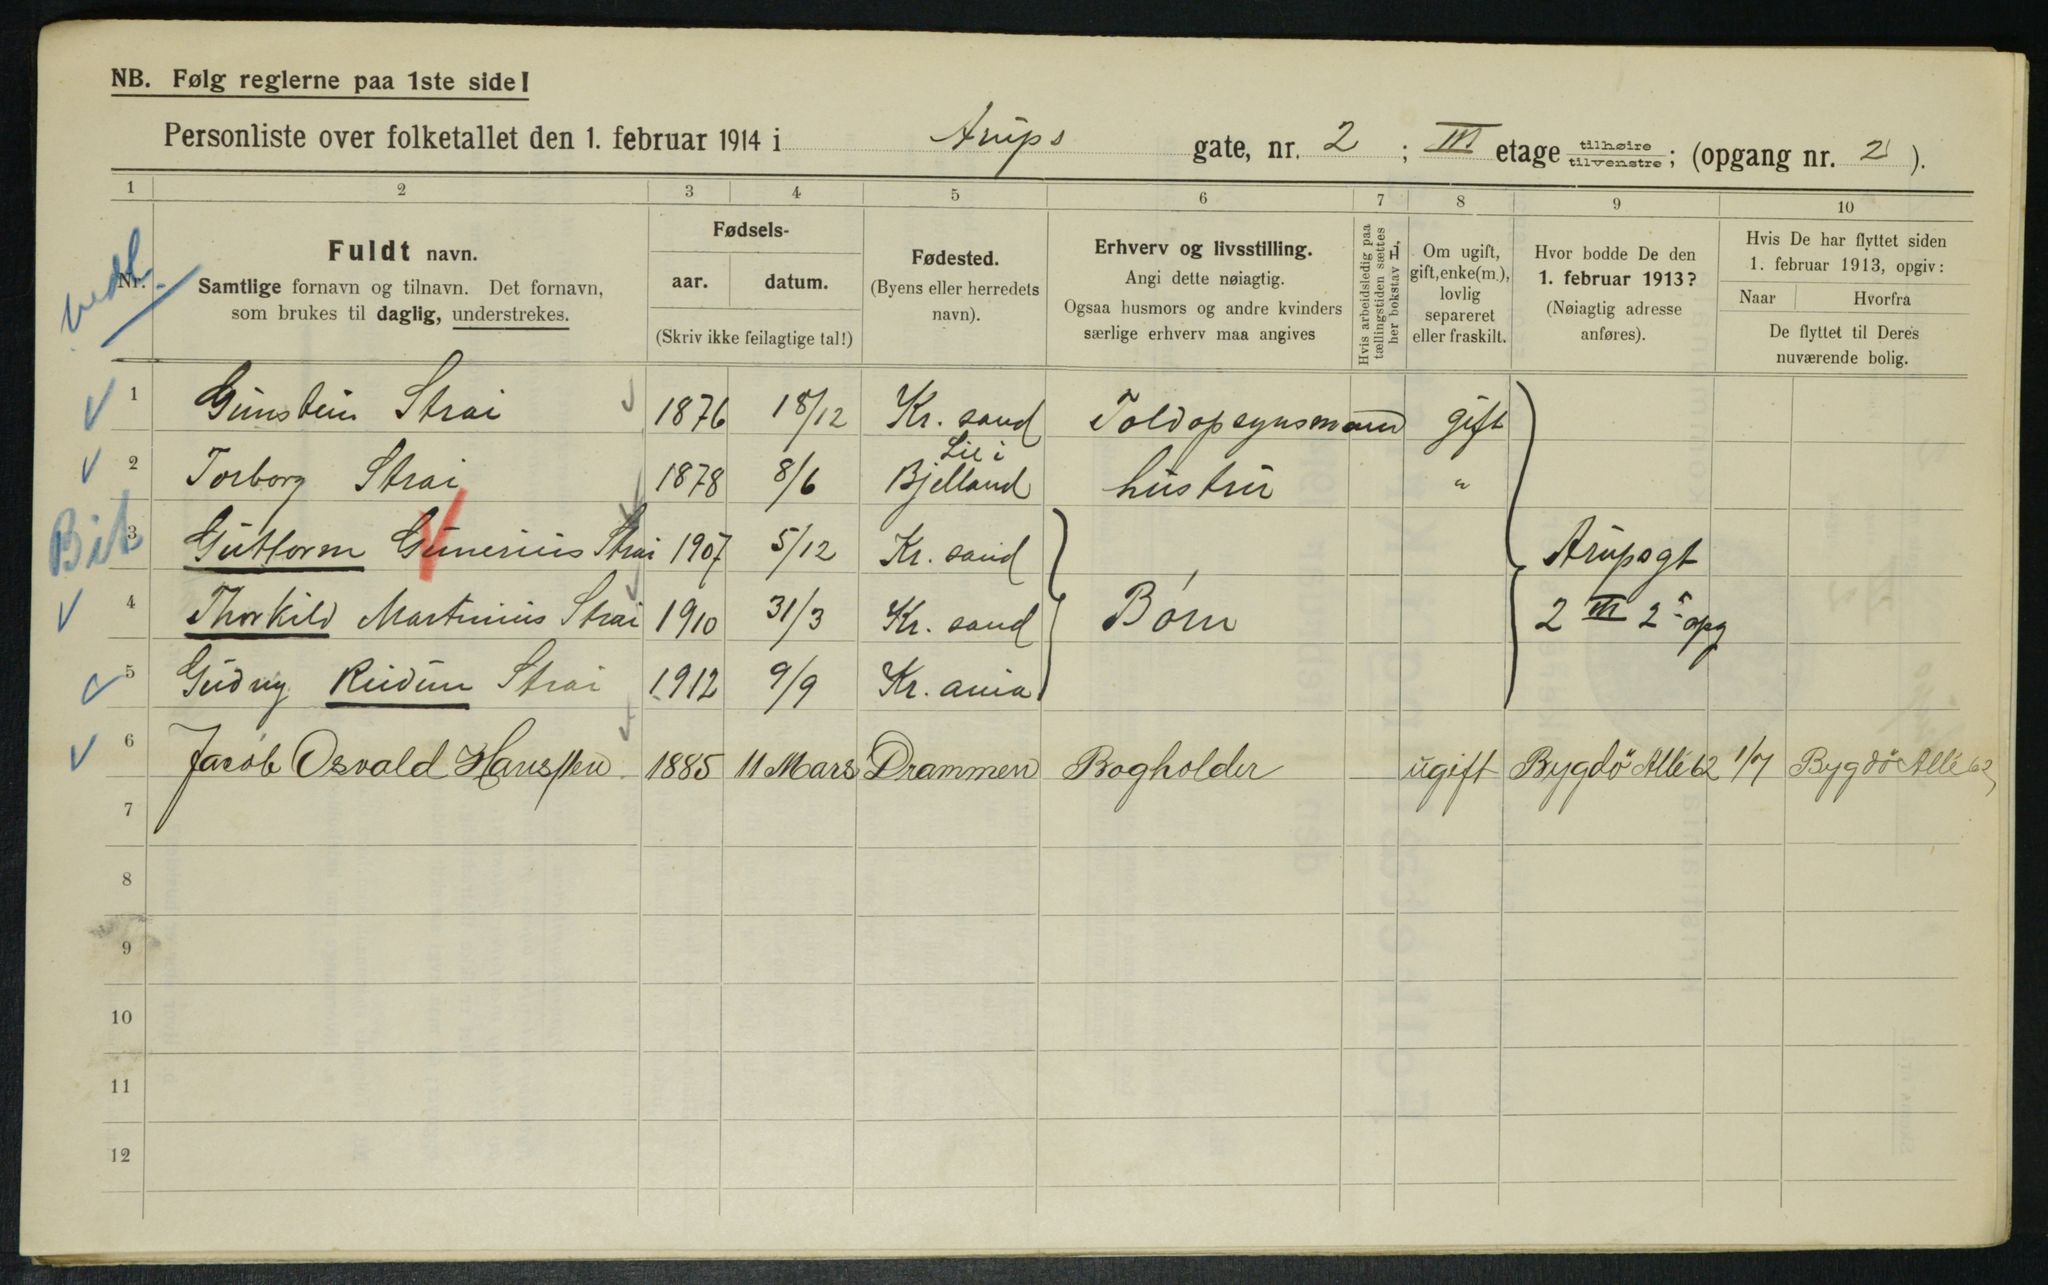 NB. Følg reglerne paa 1ste side!
Personliste over folketallet den 1. februar 1914 i Arups gate, nr. 2 ; III etage tilhøire tilvenstre; (opgang nr. 2 ).
1 2 3 4 5 6 7 8 9 10
Nr.
Fuldt navn.
Samtlige fornavn og tilnavn. Det fornavn,
som brukes til daglig, understrekes.
Fødsels-
aar. datum.
(Skriv ikke feilagtige tal!)
Fødested.
(Byens eller herredets
navn).
Erhverv og livsstilling.
Angi dette nøiagtig.
Ogsaa husmors og andre kvinders
særlige erhverv maa angives
Hvis arbeidsledig paa
tællingstiden sættes
her bokstav L.
Om ugift,
gift, enke(m.),
lovlig
separeret
eller fraskilt.
Hvor bodde De den
1. februar 1913?
(Nøiagtig adresse
anføres).
Hvis De har flyttet siden
1. februar 1913, opgiv:
Naar Hvorfra
De flyttet til Deres
nuværende bolig.
1 Gunstein Strai 1876 18/12 Kr. sand Toldopsynsmand gift
2 Torborg Strai 1878 8/6 Lie i Bjelland hustru "
Bit 3 Guttorm Gunerius Strai 1907 5/12 Kr. sand Arupsgt
4 Thorkild Martinius Strai 1910 31/3 Kr. sand Børn 2 III 2 opg
5 Gudny Reidun Strai 1912 9/9 Kr. ania
6 Jacob Osvald Hanssen 1885 11 Mars Drammen Bogholder ugift Bygdö Allé 62 1/7 Bygdö Allé 62
7
8
9
10
11
12